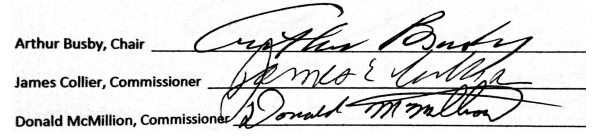 Arthur Busby, Chair Arthur Busby
James Collier, Commissioner James E
Donald McMillion, Commissioner Donald McMillion